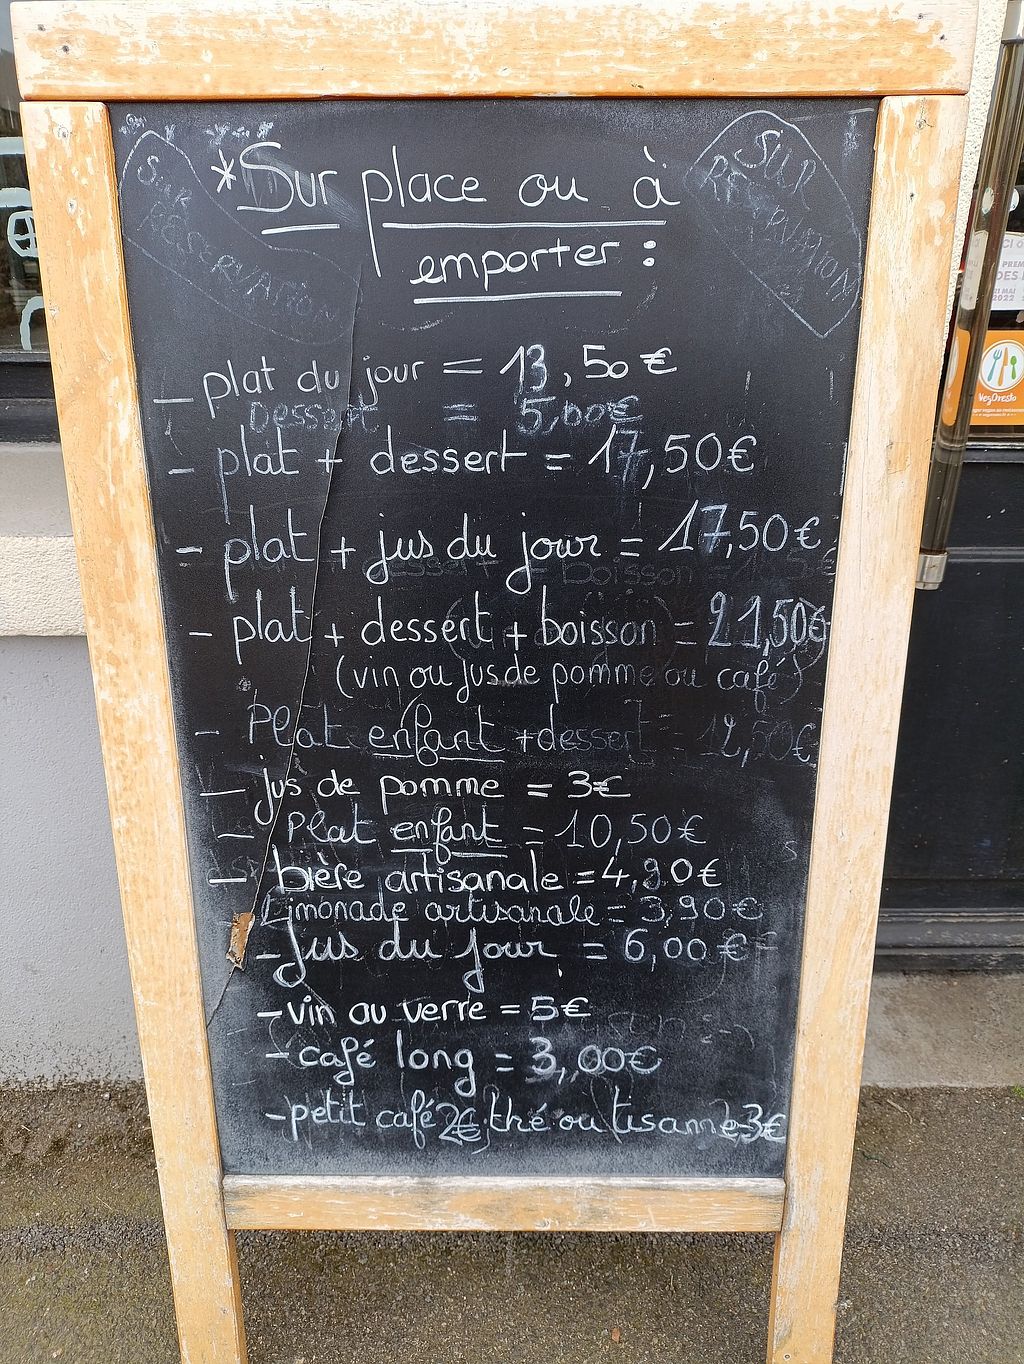 SUR
RESERVATION
*Sur place ou à
emporter :
SUR
RESERVATION
— plat du jour = 13,50€
Dessert = 5,00€
- plat + dessert = 17,50€
- plat + jus du jour = 17,50€
- plat + dessert + boisson = 21,50€
(vin ou jus de pomme ou café)
- Plat enfant + dessert = 12,50€
— jus de pomme = 3€
— Plat enfant = 10,50€
— bière artisanale = 4,90€
Limonade artisanale = 3,90€
- Jus du jour = 6,00€
- vin au verre = 5€
- café long = 3,00€
- petit café 2€, thé ou tisanne 3€
21 MAI
2022
VegOresto